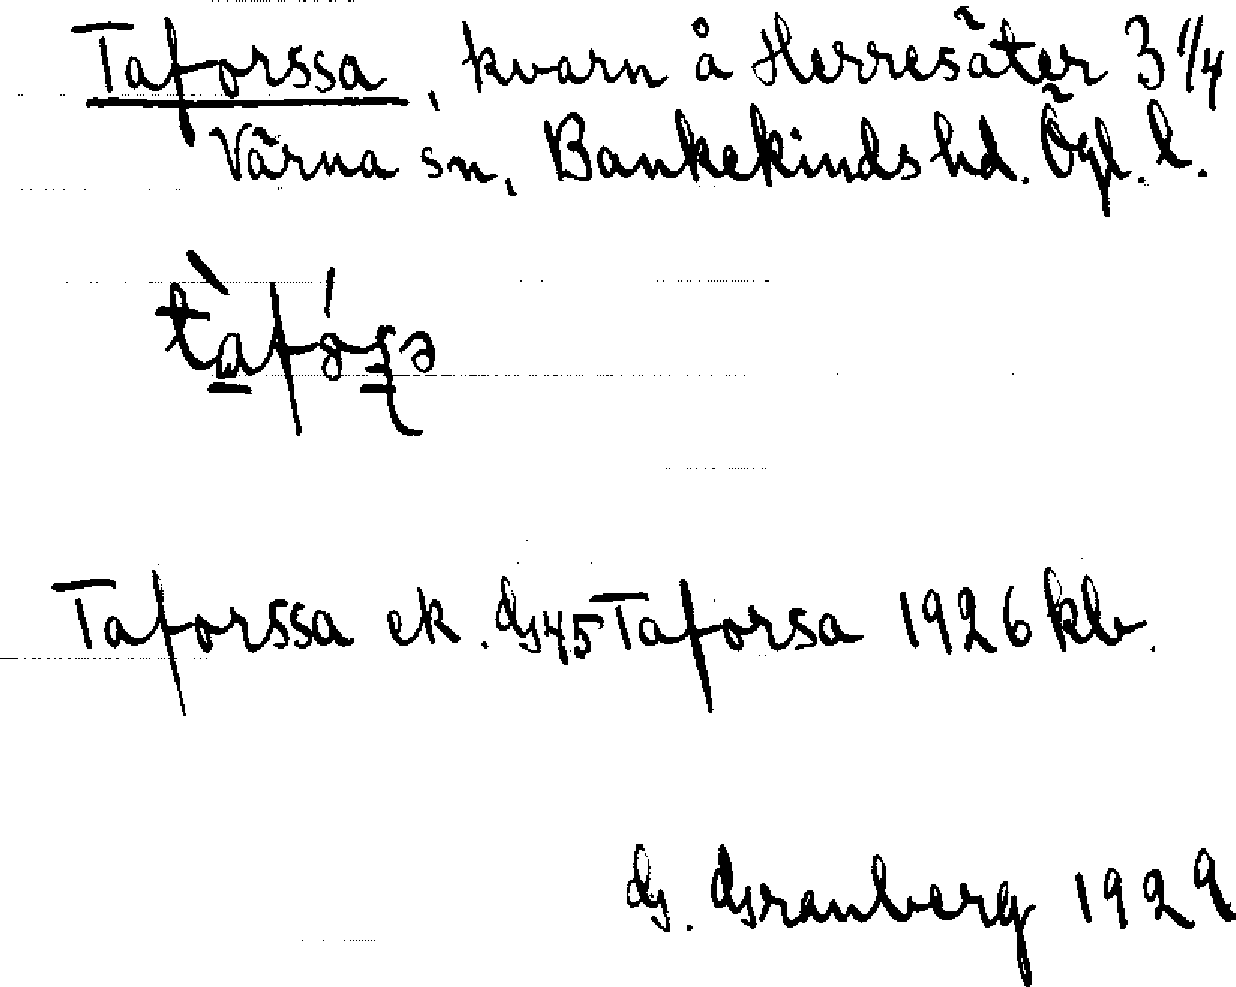 Taforssa, kvarn å Herresäter 3 1/4
Värna sn, Bankekinds hd. Ögl. l.
Taforssa ek. G 45 Taforsa 1926 kb.
G. Granberg 1929